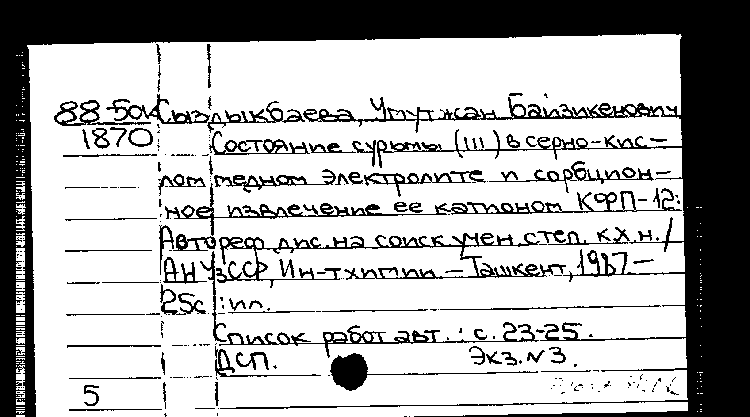 88-50к Сыздыкбаева, Умутжан Байзикенович
1870 Состояние сурьмы (III) в серно-кис-
лом медном электролите и сорбцион-
ное извлечение ее катионом КФП-12:
Автореф. дис. на соиск. учен. степ. к.х.н. /
АН УзССР, Ин-т химии. — Ташкент, 1987 —
25с. : ил.
Список работ авт. : с. 23-25.
ДСП. Экз. N 3.
5